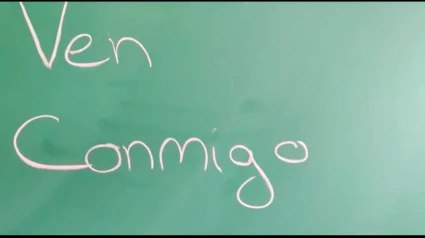 Ven
Conmigo